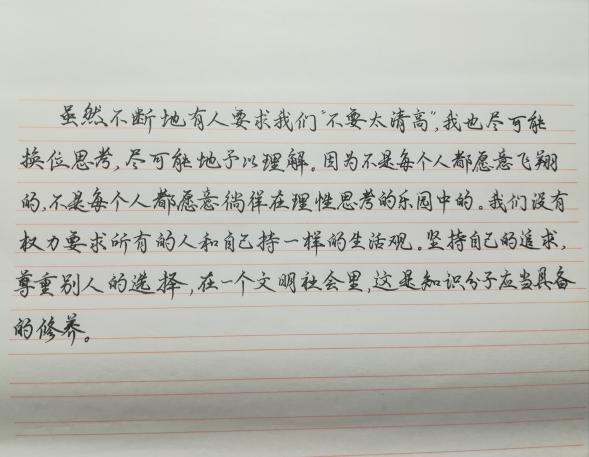 虽然不断地有人要求我们“不要太清高”,我也尽可能
换位思考,尽可能地予以理解。因为不是每个人都愿意飞翔
的,不是每个人都愿意徜徉在理性思考的乐园中的。我们没有
权力要求所有的人和自己持一样的生活观。坚持自己的追求,
尊重别人的选择,在一个文明社会里,这是知识分子应当具备
的修养。